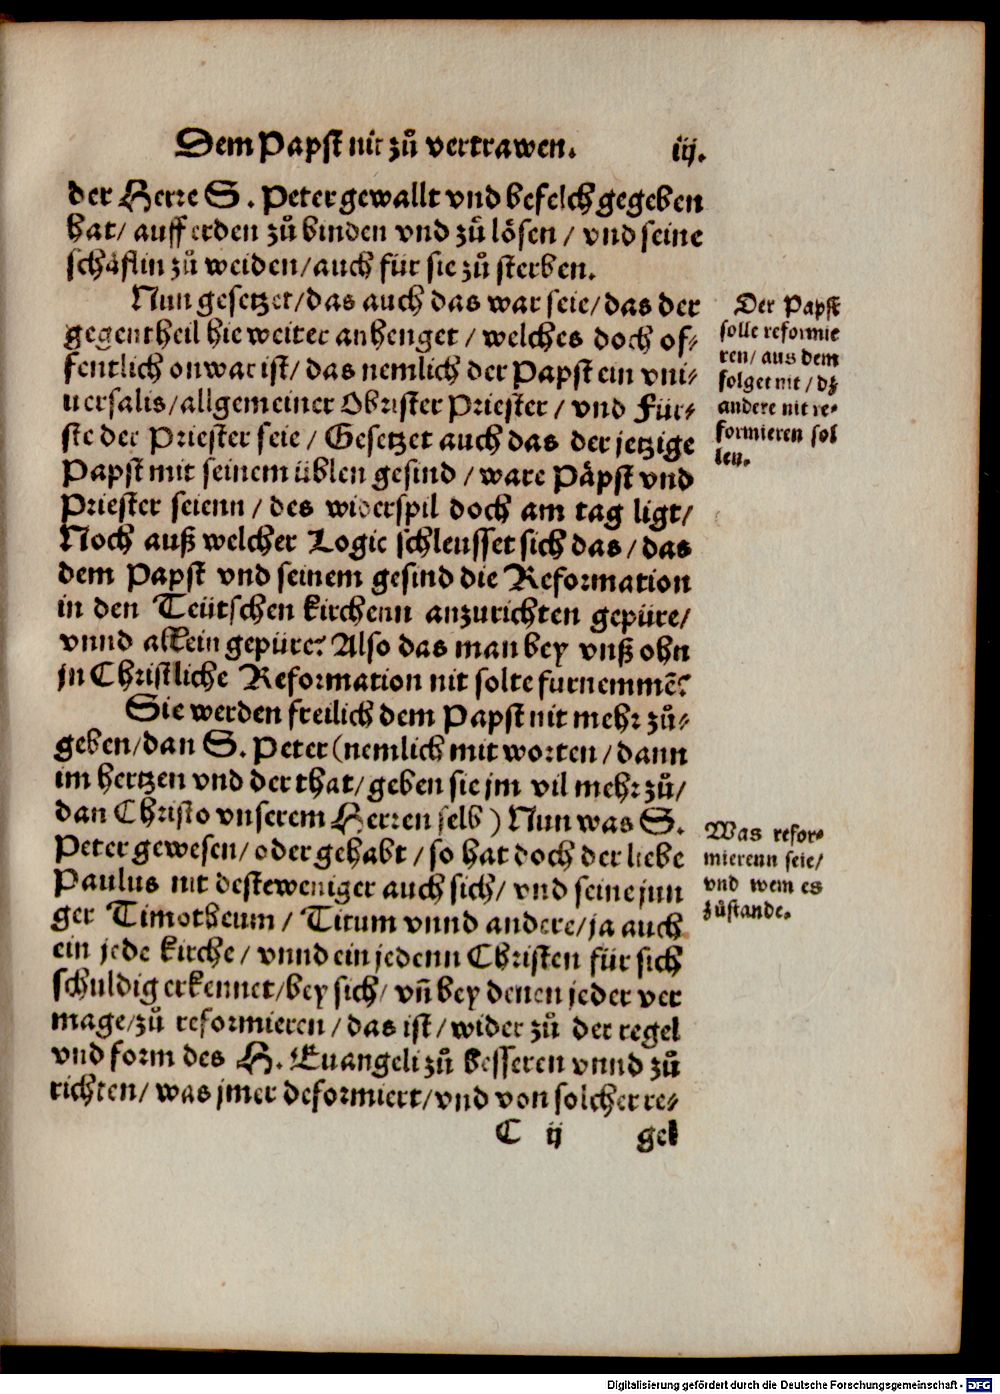 Dem Papst nit zů vertrawen. iij.
der Herre S. Peter gewallt vnd befelch gegeben
hat/ auff erden zů binden vnd zů lösen / vnd seine
schäflin zů weiden/auch für sie zů sterben.
Nun gesetzet/das auch das war seie/das der
gegentheil hie weiter anhenget / welches doch of⸗
fentlich onwar ist/ das nemlich der Papst ein vni⸗
uersalis/allgemeiner Obrister Priester / vnd Für⸗
ste der Priester seie / Gesetzet auch das der jetzige
Papst mit seinem üblen gesind / ware Päpst vnd
Priester seienn / des widerspil doch am tag ligt/
Noch auß welcher Logic schleusset sich das / das
dem Papst vnd seinem gesind die Reformation
in den Teütschen kirchenn anzurichten gepüre/
vnnd allein gepüre? Also das man bey vnß ohn
jn Christliche Reformation nit solte furnemmē?
Sie werden freilich dem Papst nit mehr zů⸗
geben/dan S. Peter (nemlich mit worten / dann
im hertzen vnd der that/ geben sie jm vil mehr zů/
dan Christo vnserem Herren selb) Nun was S.
Peter gewesen/ oder gehabt / so hat doch der liebe
Paulus nit desteweniger auch sich/ vnd seine jun
ger Timotheum / Titum vnnd andere/ja auch
ein jede kirche/ vnnd ein jedenn Christen für sich
schuldig erkennet/bey sich/ vn̄ bey denen jeder ver
mage/zů reformieren / das ist / wider zů der regel
vnd form des H. Euangeli zů besseren vnnd zů
richten/ was jmer deformiert/vnd von solcher re⸗
C ij gel
Der Papst
solle reformie
ren/ aus dem
folget nit / dz
andere nit re⸗
formieren sol
len.
Was refor⸗
mierenn seie/
vnd wem es
zůstande.
Digitalisierung gefördert durch die Deutsche Forschungsgemeinschaft - DFG